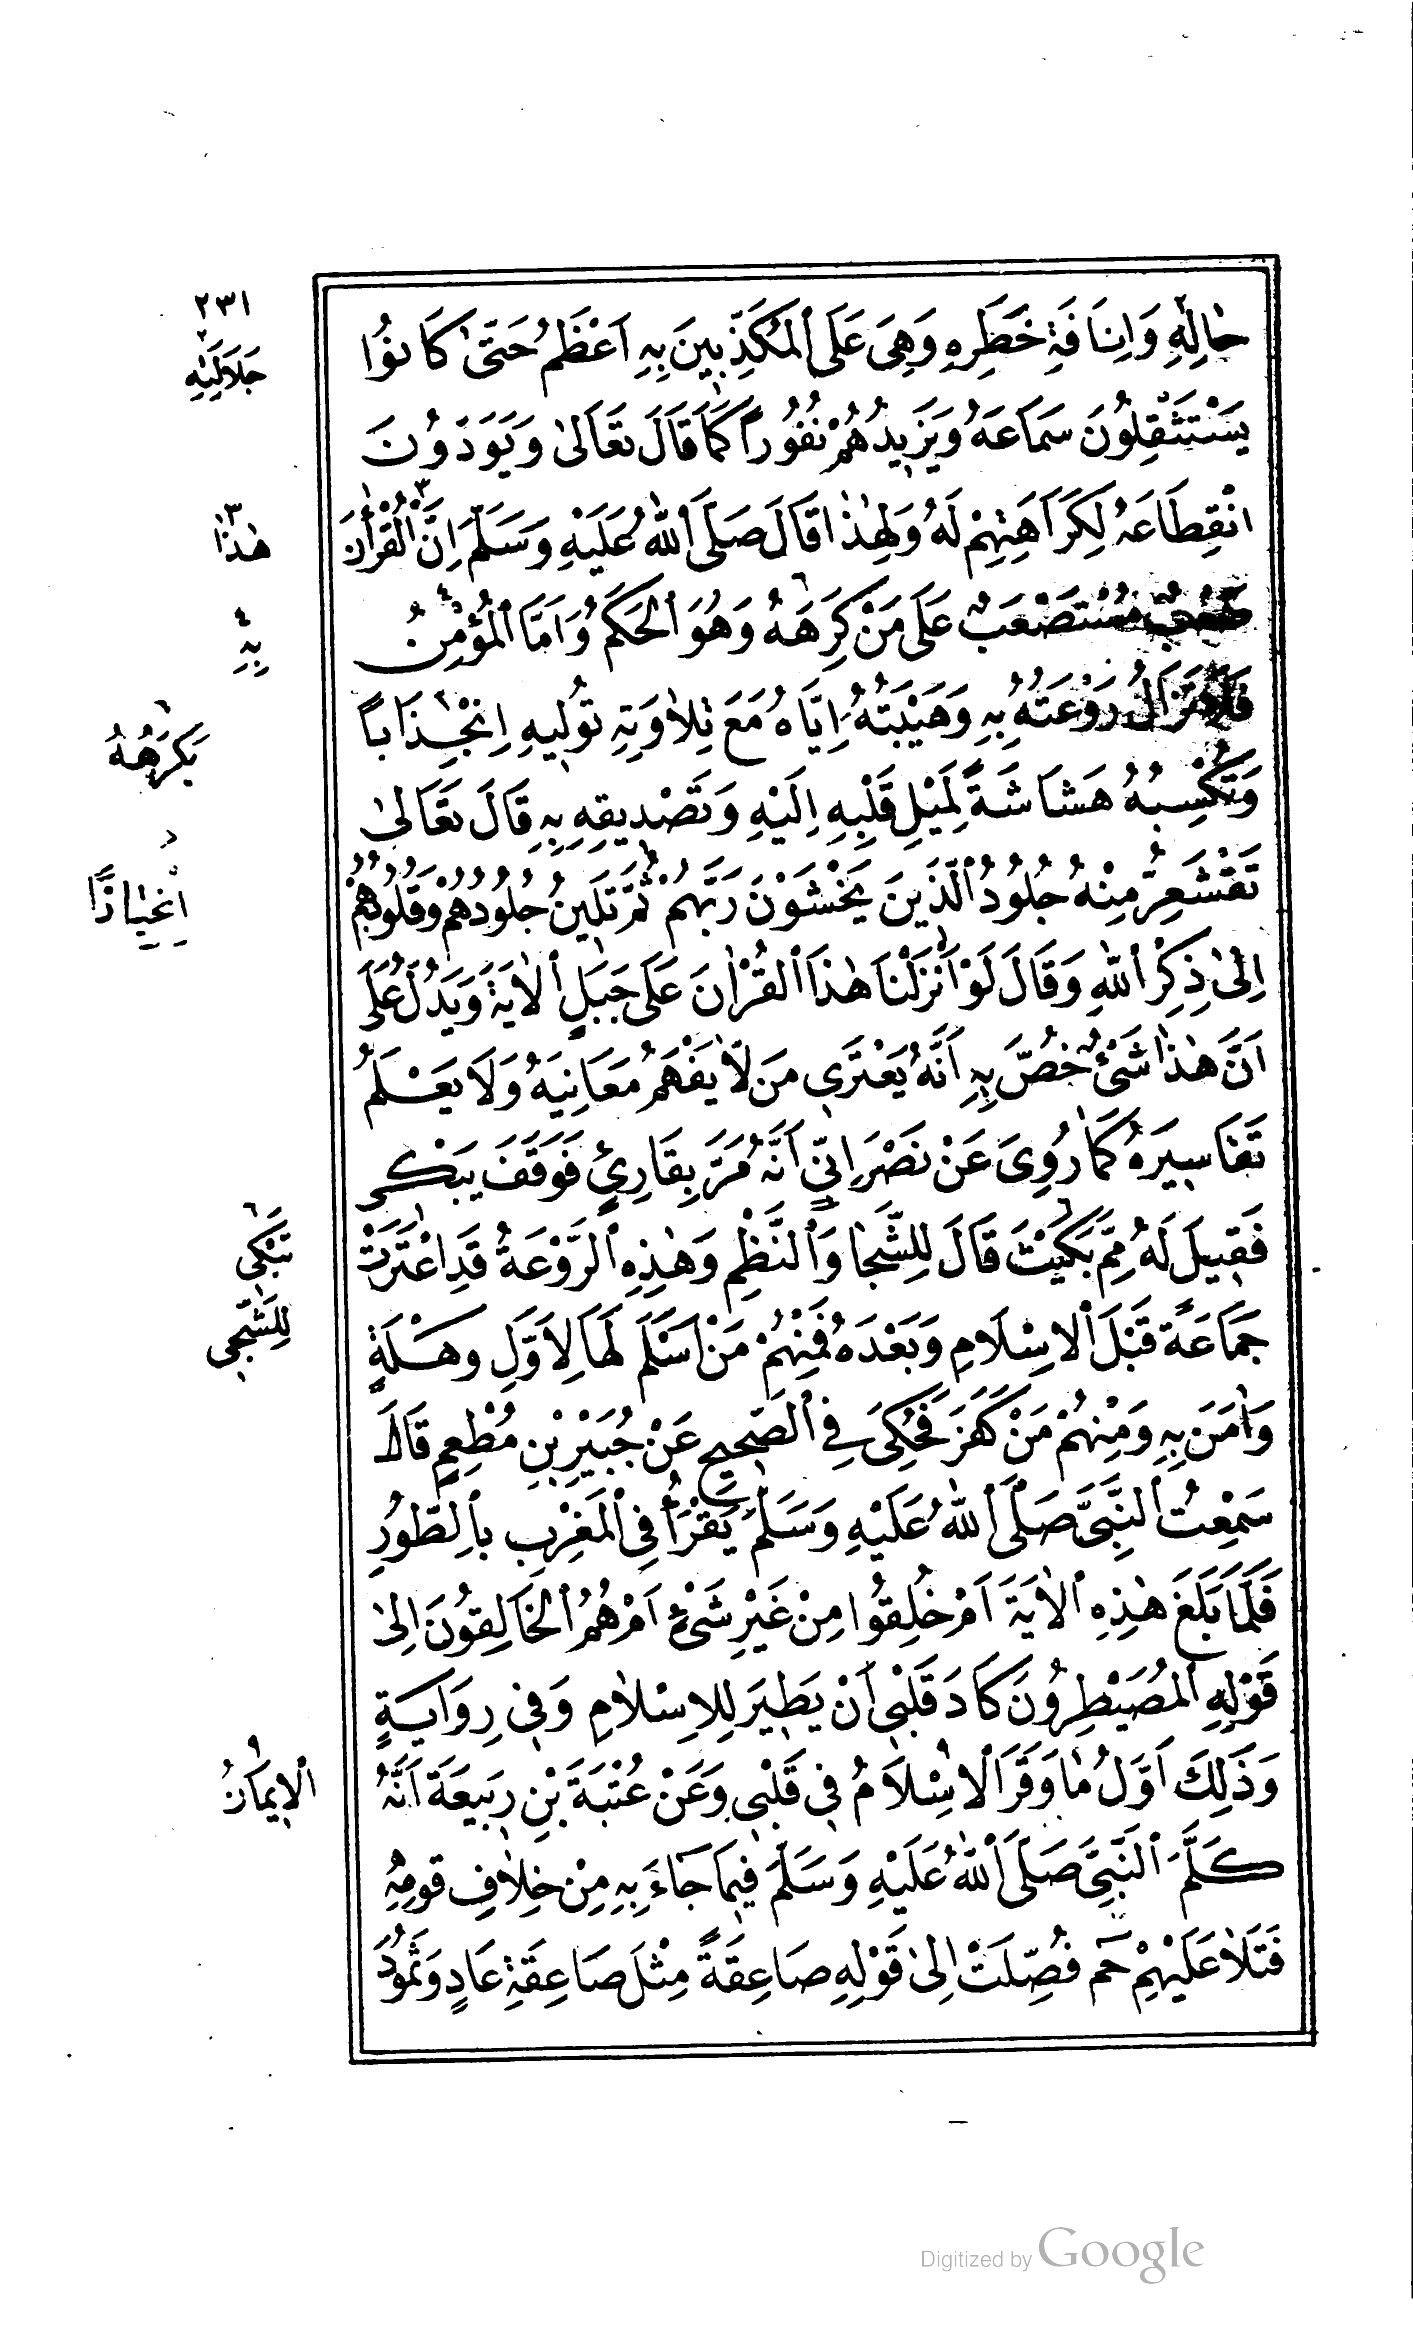 ٢٣١
حَالِهِ وَاِنَافَةِ خَطَرِهِ وَهِىَ عَلَى ٱلْمُكَذِّبِينَ بِهِ اَعْظَمُ حَتّٰى كَانُوا
يَسْتَثْقِلُونَ سَمَاعَهُ وَيَزِيدُهُمْ نُفُوراً كَمَا قَالَ تَعَالٰى وَيَوَدُّونَ
انْقِطَاعَهُ لِكَرَاهَتِهِمْ لَهُ وَلِهٰذَا قَالَ صَلَّى ٱللّٰهُ عَلَيْهِ وَسَلَّمَ اِنَّ ٱلْقُرْاٰنَ
صَعْبٌ مُسْتَصْعَبٌ عَلَى مَنْ كَرِهَهُ وَهُوَ ٱلْحَكَمُ وَاَمَّا ٱلْمُؤْمِنُ
فَلَا تَزَالُ رَوْعَتُهُ بِهِ وَهَيْبَتُهُ اِيَّاهُ مَعَ تِلَاوَتِهِ تُولِيهِ اِنْجِذَاباً
وَتُكْسِبُهُ هَشَاشَةً لِمَيْلِ قَلْبِهِ اِلَيْهِ وَتَصْدِيقِهِ بِهِ قَالَ تَعَالٰى
تَقْشَعِرُّ مِنْهُ جُلُودُ ٱلَّذِينَ يَخْشَوْنَ رَبَّهُمْ ثُمَّ تَلِينُ جُلُودُهُمْ وَقُلُوبُهُمْ
اِلٰى ذِكْرِ ٱللّٰهِ وَقَالَ لَوْ اَنْزَلْنَا هٰذَا ٱلْقُرْاٰنَ عَلَى جَبَلٍ ٱلْاٰيَةَ وَيَدُلُّ عَلَى
اَنَّ هٰذَا شَىْءٌ خُصَّ بِهِ اَنَّهُ يَعْتَرِى مَنْ لَا يَفْهَمُ مَعَانِيَهُ وَلَا يَعْلَمُ
تَفَاسِيرَهُ كَمَا رُوِىَ عَنْ نَصْرَانِىٍّ اَنَّهُ مَرَّ بِقَارِئٍ فَوَقَفَ يَبْكِى
فَقِيلَ لَهُ مِمَّ بَكَيْتَ قَالَ لِلشَّجَا وَٱلنَّظْمِ وَهٰذِهِ ٱلرَّوْعَةُ قَدِ اعْتَرَتْ
جَمَاعَةً قَبْلَ ٱلْاِسْلَامِ وَبَعْدَهُ فَمِنْهُمْ مَنْ اَسْلَمَ لَهَا لِاَوَّلِ وَهْلَةٍ
وَاٰمَنَ بِهِ وَمِنْهُمْ مَنْ كَفَرَ فَحُكِىَ فِى ٱلصَّحِيحِ عَنْ جُبَيْرِ بْنِ مُطْعِمٍ قَالَ
سَمِعْتُ ٱلنَّبِىَّ صَلَّى ٱللّٰهُ عَلَيْهِ وَسَلَّمَ يَقْرَأُ فِى ٱلْمَغْرِبِ بِٱلطُّورِ
فَلَمَّا بَلَغَ هٰذِهِ ٱلْاٰيَةَ اَمْ خُلِقُوا مِنْ غَيْرِ شَىْءٍ اَمْ هُمُ ٱلْخَالِقُونَ اِلٰى
قَوْلِهِ ٱلْمُصَيْطِرُونَ كَادَ قَلْبِى اَنْ يَطِيرَ لِلْاِسْلَامِ وَفِى رِوَايَةٍ
وَذٰلِكَ اَوَّلُ مَا وَقَرَ ٱلْاِسْلَامُ فِى قَلْبِى وَعَنْ عُتْبَةَ بْنِ رَبِيعَةَ اَنَّهُ
كَلَّمَ ٱلنَّبِىَّ صَلَّى ٱللّٰهُ عَلَيْهِ وَسَلَّمَ فِيمَا جَاءَ بِهِ مِنْ خِلَافِ قَومِهِ
فَتَلَا عَلَيْهِمْ حٰم فُصِّلَتْ اِلٰى قَوْلِهِ صَاعِقَةً مِثْلَ صَاعِقَةِ عَادٍ وَثَمُودَ
٢
جَلَالَتِهِ
٣
هٰذَا
٤
بِهِ
٦
يَكْرَهُهُ
اِنْحِيَازًا
٦
تَبْكِى
لِلشَّجٰى
٩
ٱلْاِيمَانُ
Digitized by Google